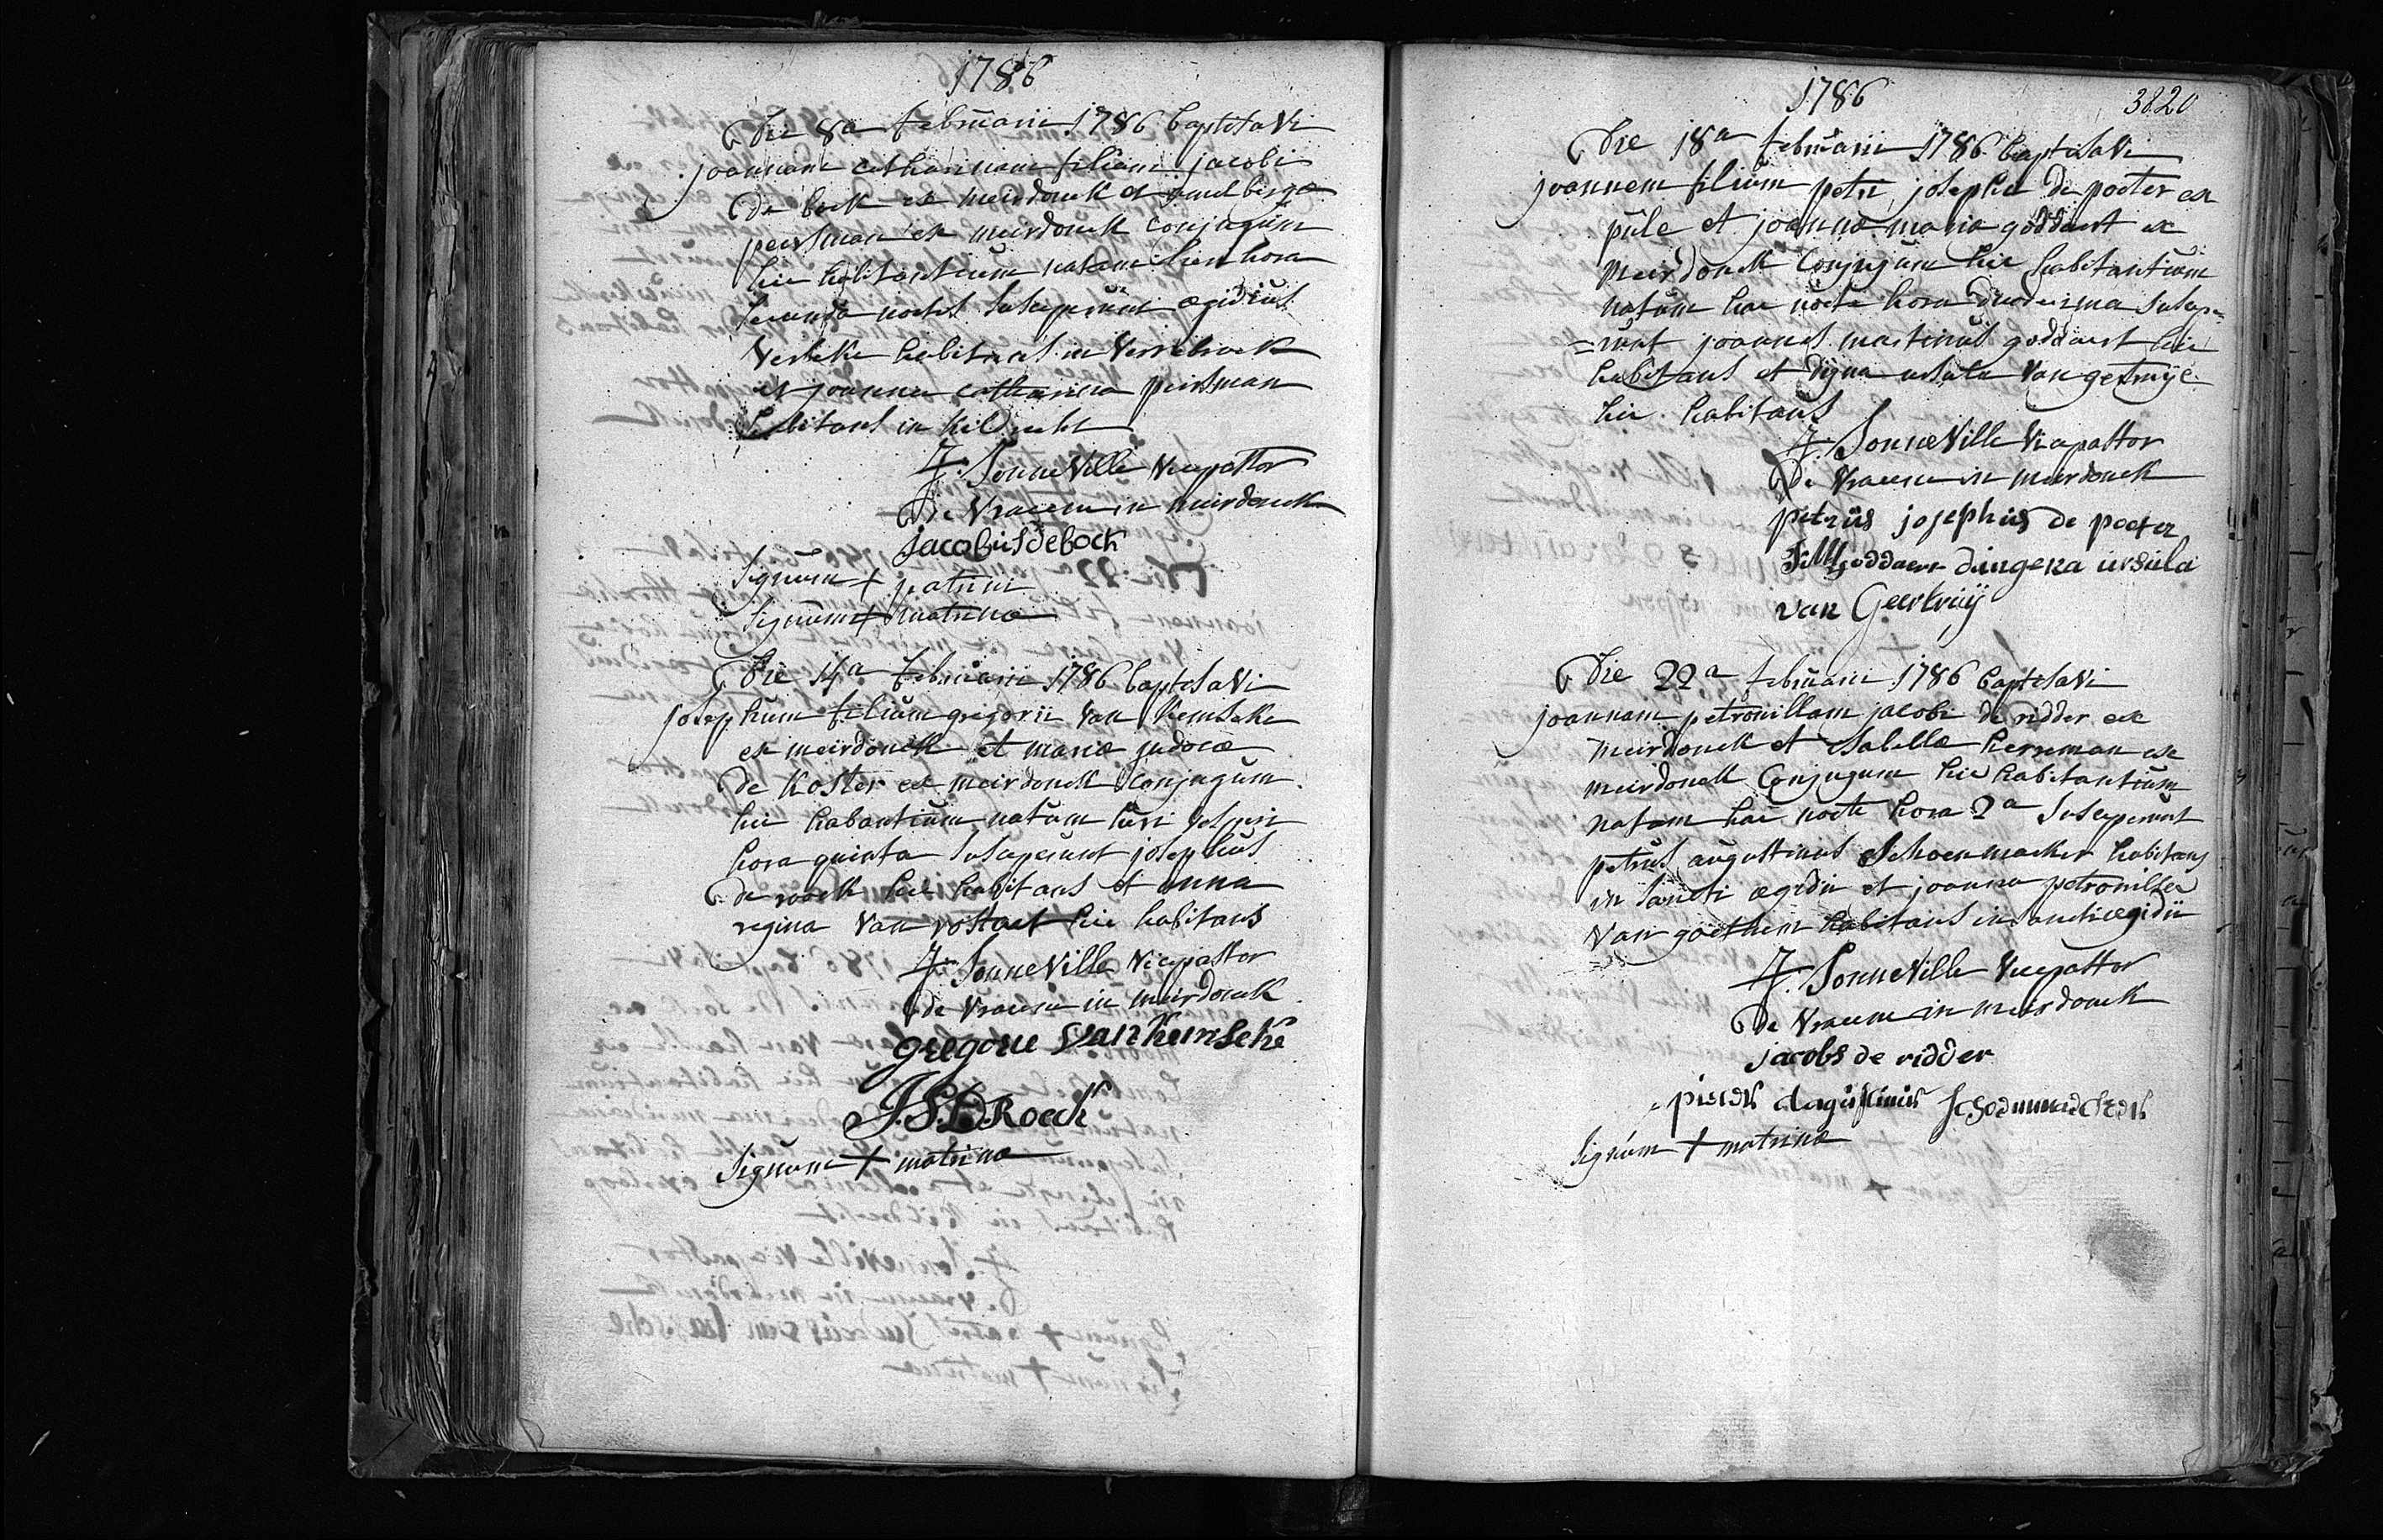 1786
Die 8a februarii 1786 baptisavi
joannam catharinam filiam jacobi
de bock ex meirdonck et amelbergæ
peersman ex meirdonck conjugum
hic habitantium natam heri hora
secunda noctis susceperunt ægidius
Verbeke habitans in Verrebroek
et joanna catharina peirsman
habitans in kildrecht
J: Sonneville vicepastor
De Vracene in meirdonck
jacobus de bock
signum + patrini
signum + matrinæ
Die 14a februarii 1786 baptisavi
josephum filium gregorii Van Kemseke
ex meirdonck et mariæ judocæ
de Koster ex meirdonck conjugum
hic habantium natum heri vesperi
hora quinta susceperunt josephus
de roeck hic habitans et anna
regina Van vostaet hic habitans
J: Sonneville vicepastor
de Vracene in meirdonck
gregorie Van kemseke
J.S.D.Roeck
signum + matrinæ
1786
3820
Die 18a februarii 1786 baptisavi
joannem filium petri josephi de poeter ex
püle et joannæ mariæ goddaert ex
meirdonck conjugum hic habitantium
natum hac nocte hora duodecima suscepe=
=runt joannes martinus goddaert hic
habitans et digna ursula Van gertruije
hic habitans
J: Sonneville vicepastor
De Vracene in meirdonck
petrüs josephüs de poeter
goddaert dingena ursula
van Geertruij
Die 22a februarii 1786 baptisavi
joannam petronillam jacobi de ridder ex
meirdonck et isabellæ herreman ex
meirdonck conjugum hic habitantium
natam hac nocte hora 2a susceperunt
petrus augustinus schoenmaeker habitans
in sancti ægidii et joanna petronilla
Van goethem habitans in sancti ægidii
J: Sonneville vicepastor
De Vracene in meirdonck
jacobs de ridder
signum + matrinæ